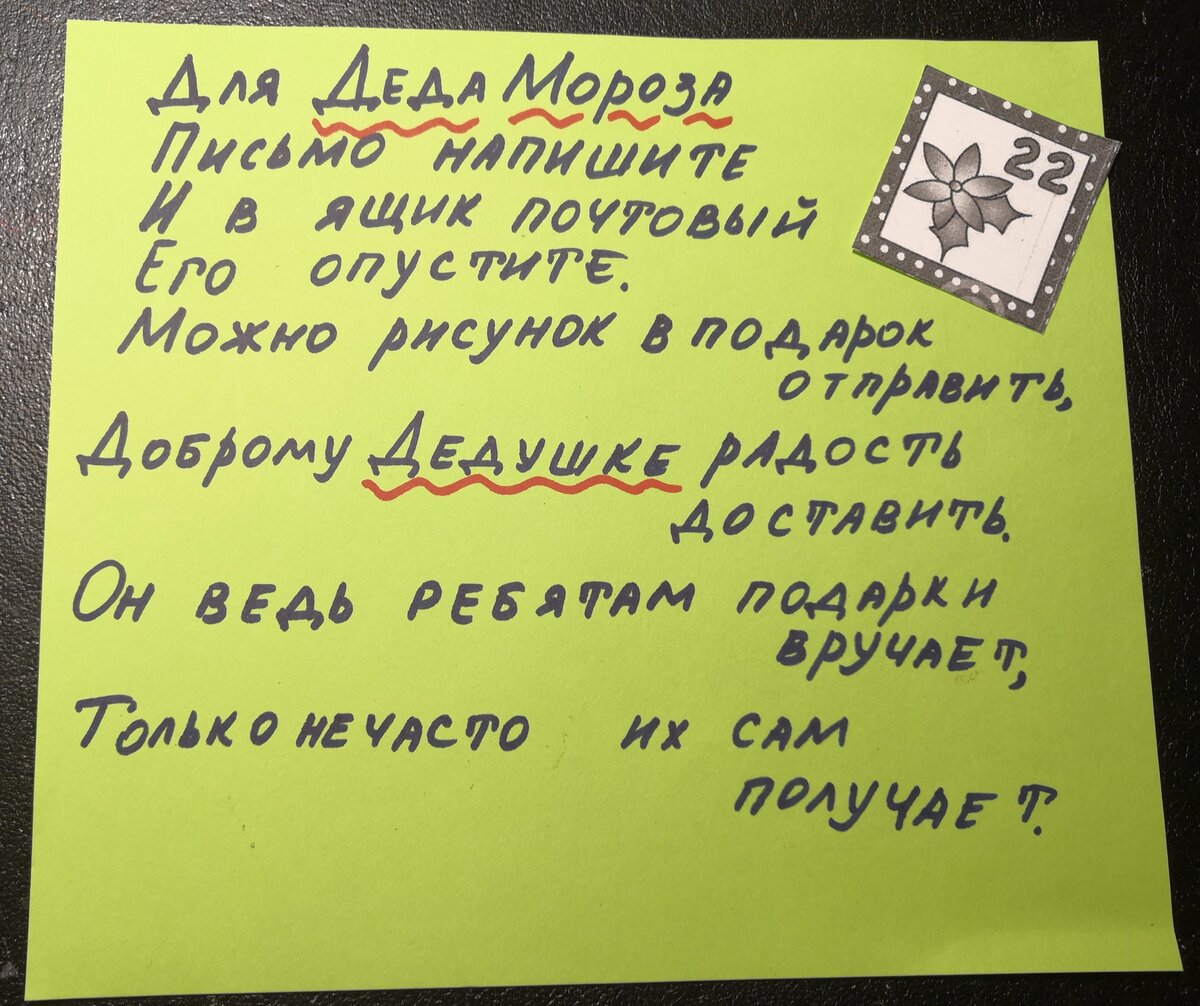 Для Деда Мороза
22
Письмо напишите
И в ящик почтовый
Его опустите.
Можно рисунок в подарок
отправить,
Доброму Дедушке радость
доставить.
Он ведь ребятам подарки
вручает,
Только нечасто их сам
получает.